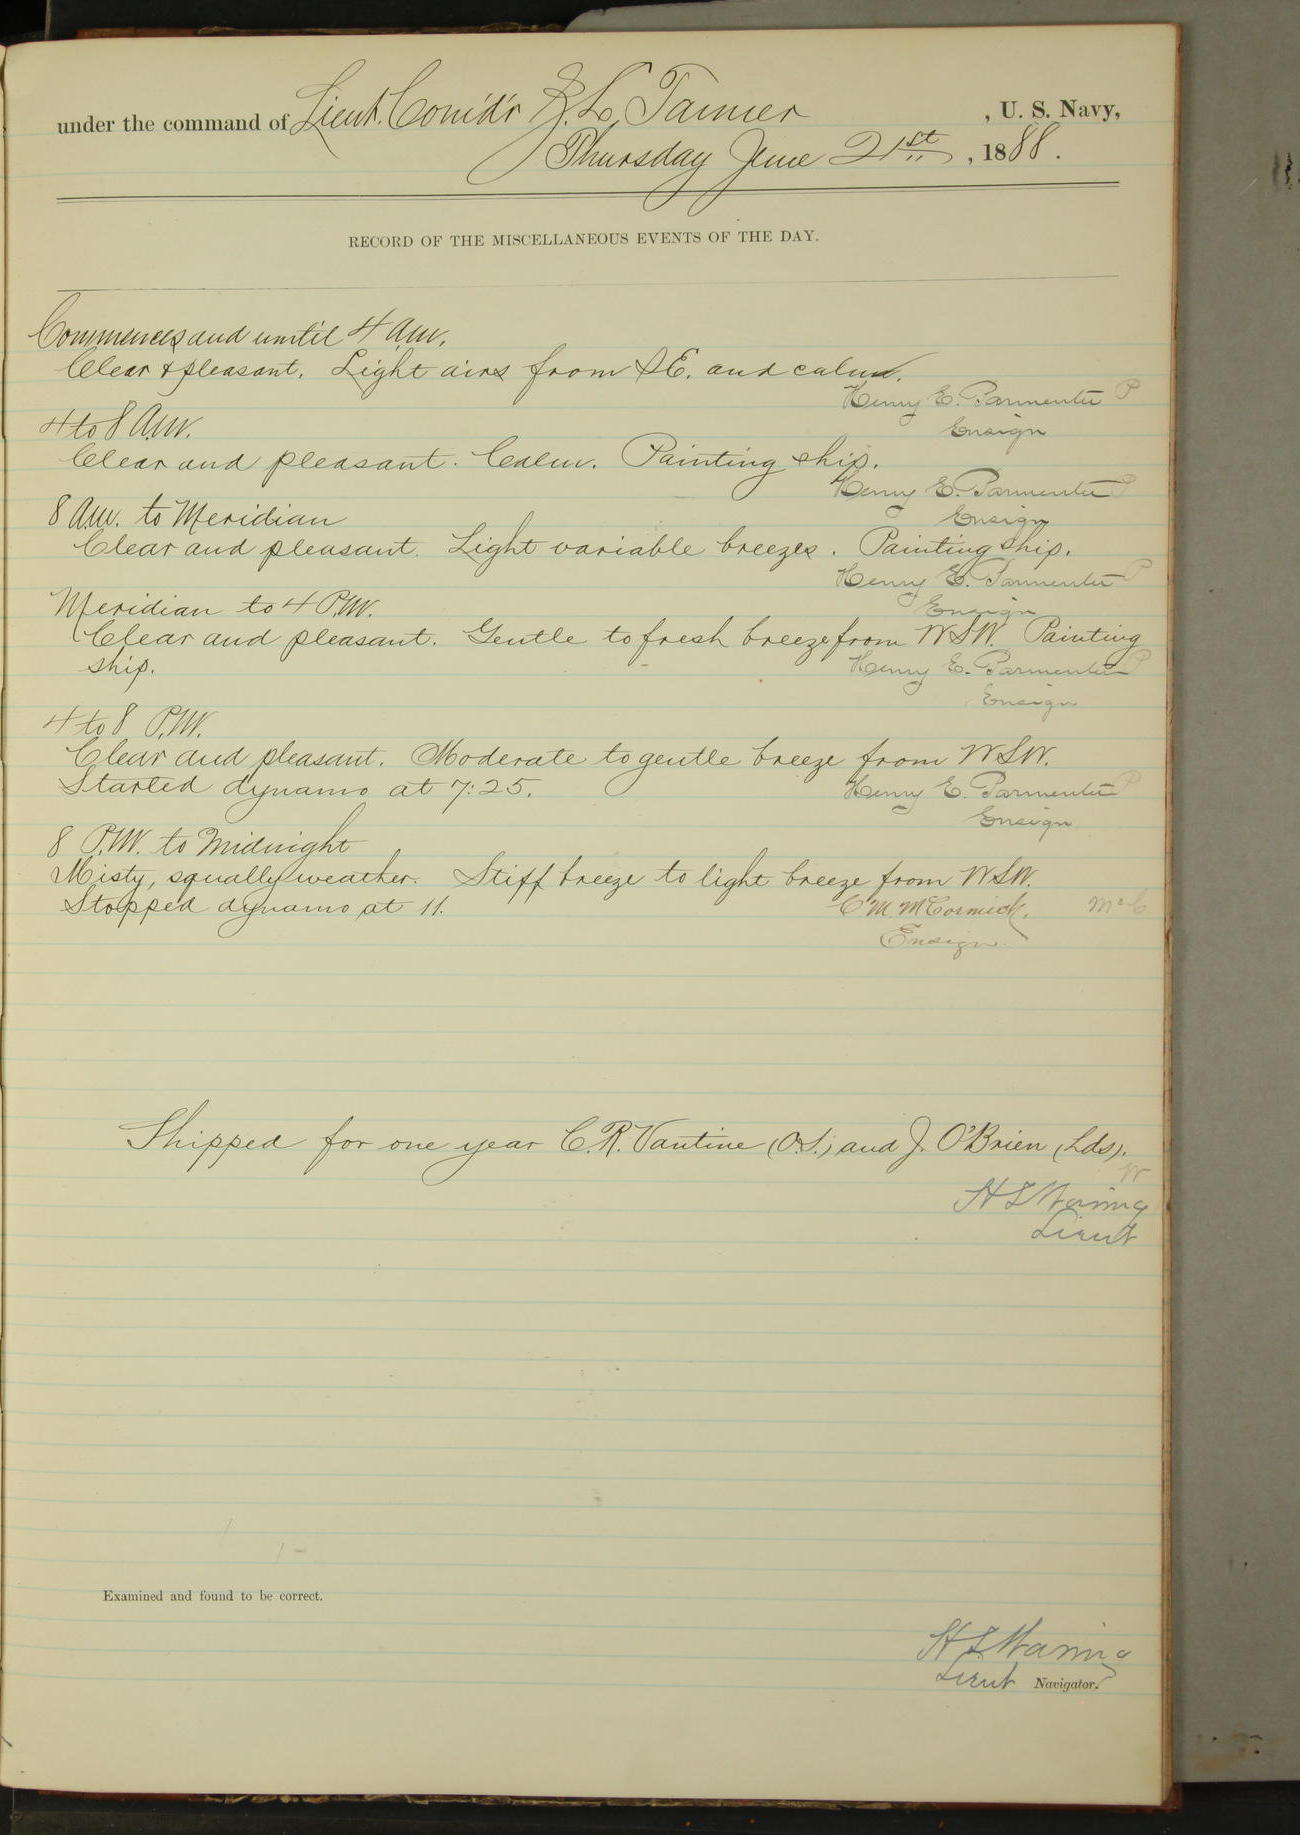 under the command of Lieut. Comd'r Z. L. Tanner, U. S. Navy,
Thursday June 21st, 1888.
RECORD OF THE MISCELLANEOUS EVENTS OF THE DAY.
Commences and until 4 a.m.
Clear & pleasant. Light airs from SE. and calm.
Henry E. Parmenter P
Ensign
4 to 8 a.m.
Clear and pleasant. Calm. Painting ship.
Henry E. Parmenter P
Ensign
8 a.m. to Meridian
Clear and pleasant. Light variable breezes. Painting ship.
Henry E. Parmenter P
Ensign
Meridian to 4 P.M.
Clear and pleasant. Gentle to fresh breeze from WSW. Painting
ship.
Henry E. Parmenter P
Ensign
4 to 8 P.M.
Clear and pleasant. Moderate to gentle breeze from WSW.
Started dynamo at 7:25.
Henry E. Parmenter P
Ensign
8 P.M. to Midnight
Misty, squally weather. Stiff breeze to light breeze from WSW.
Stopped dynamo at 11.
C M McCormick. McC
Ensign
Shipped for one year C. R. Vantine (O.S.) and J. O'Brien (Lds).
W
H S Waring
Lieut
Examined and found to be correct.
H S Waring
Lieut Navigator.